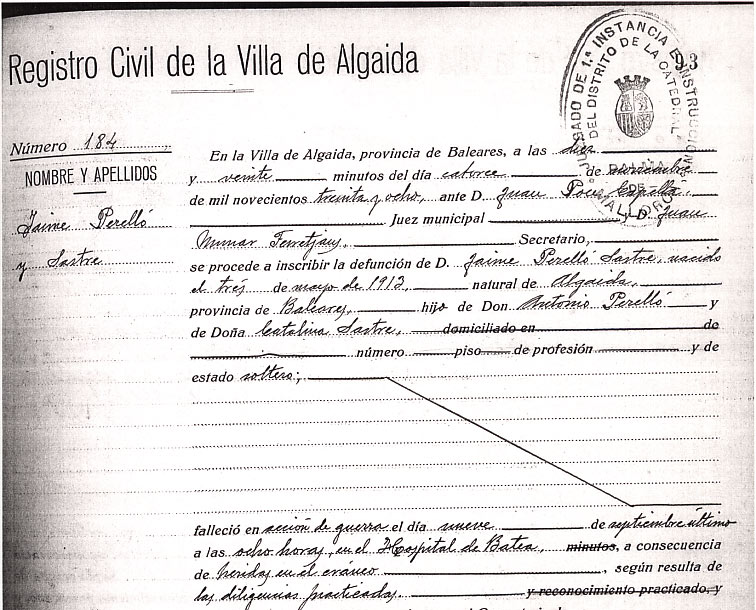 Registro Civil de la Villa de Algaida
93
JUZGADO DE 1.ª INSTANCIA E INSTRUCCION
DEL DISTRITO DE LA CATEDRAL
PALMA
DE
MALLORCA
Número 184
NOMBRE Y APELLIDOS
Jaime Perelló
y Sastre
En la Villa de Algaida, provincia de Baleares, a las diez
y veinte minutos del día catorce de noviembre
de mil novecientos treinta y ocho, ante D. Juan Pou
Juez municipal y D. Juan
Munar Ferretjans, Secretario,
se procede a inscribir la defunción de D. Jaime Perelló Sastre, nacido
el tres de mayo de 1913 natural de Algaida,
provincia de Baleares, hijo de Don Antonio Perelló y
de Doña Catalina Sastre, domiciliado en de
número piso de profesión y de
estado soltero,
falleció en acción de guerra el día nueve de septiembre último
a las ocho horas, en el Hospital de Batea, minutos, a consecuencia
de heridas en el cráneo, según resulta de
las diligencias practicadas y reconocimiento practicado, y